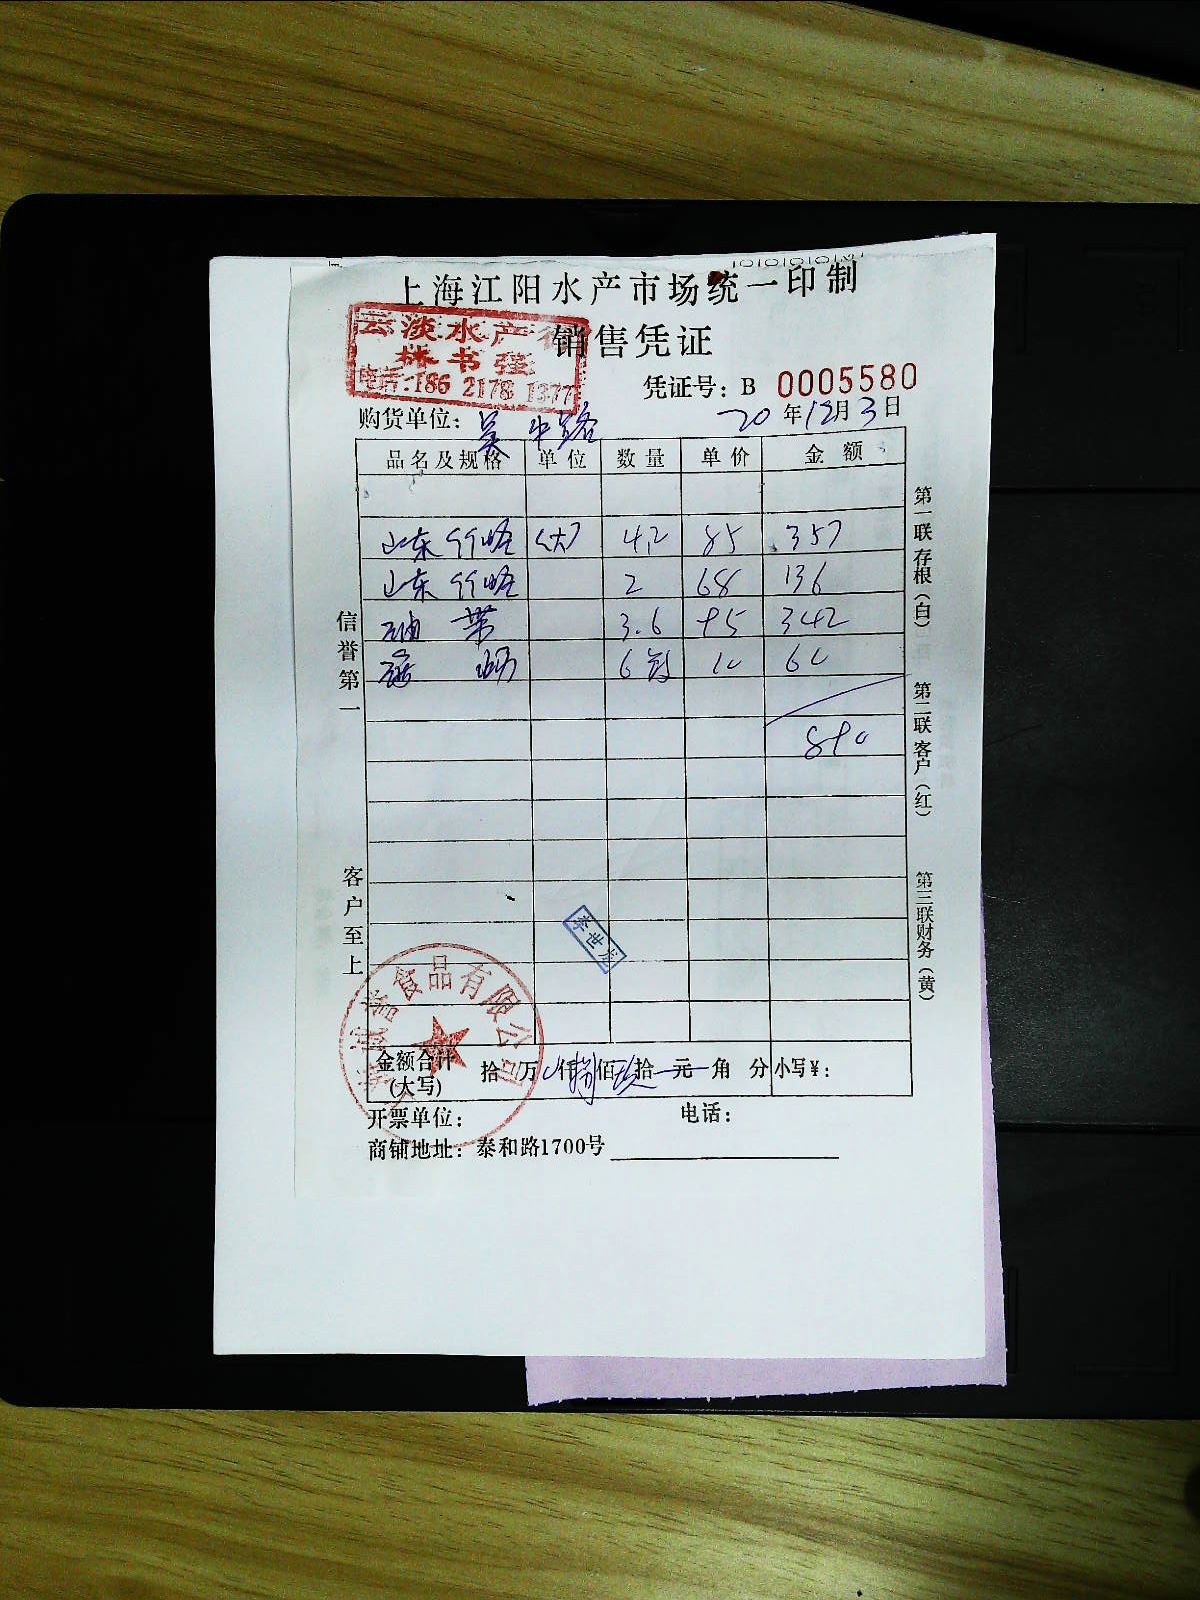 上海江阳水产市场统一印制
销售凭证
云淡水产行
林书强
电话:186 2178 1377
凭证号: B 0005580
购货单位: 吴中路 20年12月3日
品名及规格 单位 数量 单价 金额
山东竹蛏 (大) 4.2 85 357
山东竹蛏 2 68 136
带 3.6 95 342
6 10 60
890
信誉第一
客户至上
第一联存根(白)
第二联客户(红)
第三联财务(黄)
李世龙
诚誉食品有限公司
金额合计(大写) 拾 万 仟捌佰玖拾元角 分 小写¥:
开票单位: 电话:
商铺地址: 泰和路1700号